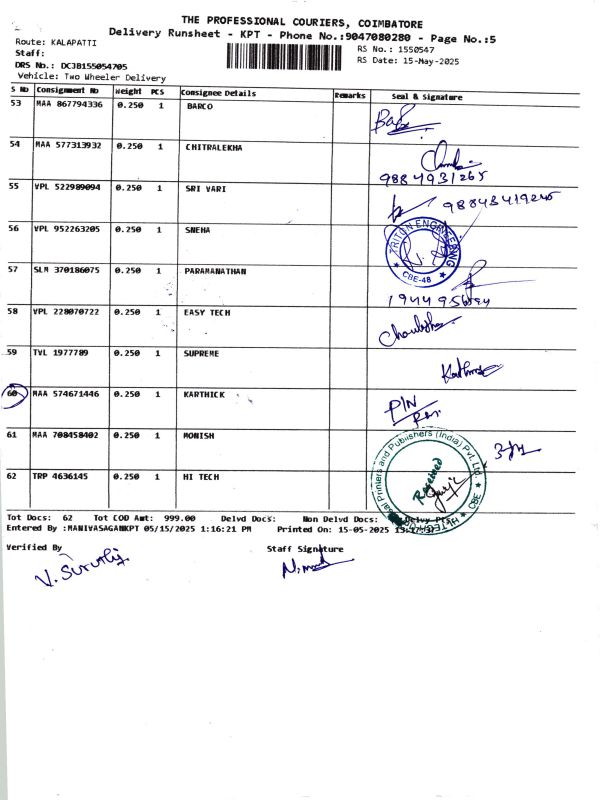 THE PROFESSIONAL COURIERS, COIMBATORE
Delivery Runsheet - KPT - Phone No.:9047080280 - Page No.:5
Route: KALAPATTI
RS No.: 1550547
Staff:
RS Date: 15-May-2025
DRS No.: DCJB155054705
Vehicle: Two Wheeler Delivery
S No Consignment No Weight PCS Consignee Details Remarks Seal & Signature
53 MAA 867794336 0.250 1 BARCO
54 MAA 577313932 0.250 1 CHITRALEKHA
9884931265
55 VPL 522989094 0.250 1 SRI VARI
56 VPL 952263205 0.250 1 SNEHA
TRITON ENGINEERING
CBE-48
57 SLM 370186075 0.250 1 PARAMANATHAN
58 VPL 228070722 0.250 1 EASY TECH
59 TVL 1977789 0.250 1 SUPREME
60 MAA 574671446 0.250 1 KARTHICK
P/N
61 MAA 708458402 0.250 1 MONISH
62 TRP 4636145 0.250 1 HI TECH
Printers and Publishers (India) Pvt. Ltd.
CBE
Received
Tot Docs: 62 Tot COD Amt: 999.00 Delvd Docs: Non Delvd Docs:
Entered By :MANIVASAGANKPT 05/15/2025 1:16:21 PM Printed On: 15-05-2025
Verified By
Staff Signature